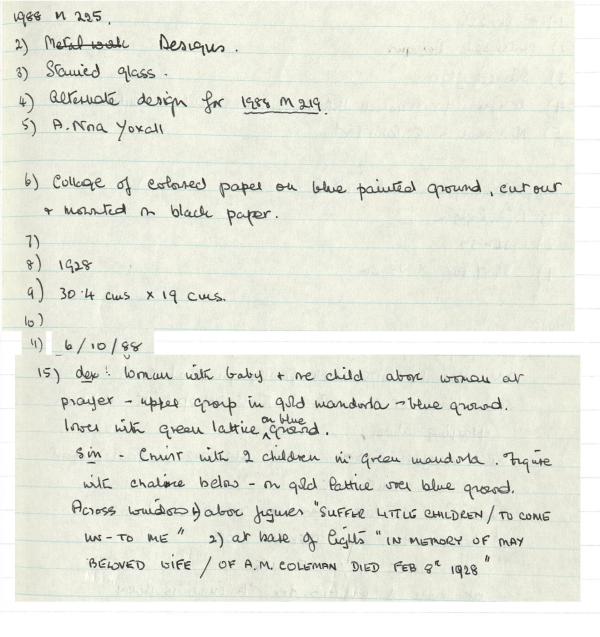 1988 M 225.
2) Metal work Designs.
3) Stained glass.
4) Alternate design for 1988 M 219.
5) A. Nora Yoxall
6) Collage of coloured paper on blue painted ground, cut out
+ mounted on black paper.
7)
8) 1928
9) 30.4 cms x 19 cms.
10)
11) 6/10/88
15) dex: Woman with baby + one child above woman at
prayer - upper group in gold mandorla - blue ground.
lower with green lattice on blue ground.
Sin - Christ with 2 children in green mandorla. Figure
with chalice below - on gold lattice over blue ground.
Across window 1) above figures "SUFFER LITTLE CHILDREN / TO COME
UN-TO ME" 2) at base of lights "IN MEMORY OF MAY
BELOVED WIFE / OF A.M. COLEMAN DIED FEB 8th 1928"